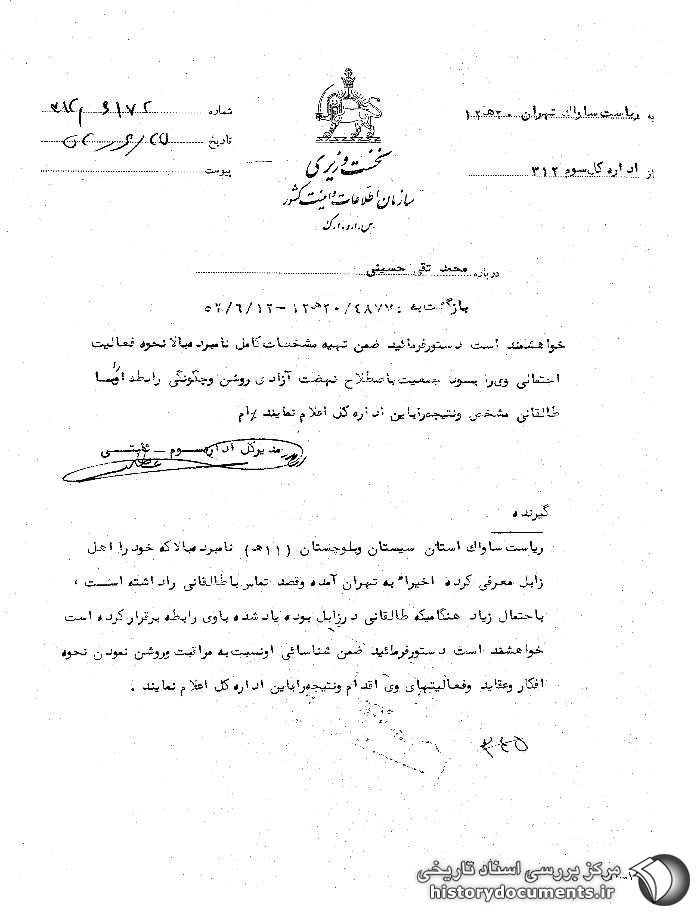 به ریاست ساواک تهران ۱۲ﻫ۲۰
از اداره کل سوم ۳۱۲
نخست وزیری
سازمان اطلاعات و امنیت کشور
س.ا.و.ا.ک
شماره ۳۱۲/۶۱۷۲
تاریخ
پیوست
درباره محمد تقی حسینی
بازگشت به : ۱۲ﻫ۲۰/۴۸۷۷ -۵۲/۶/۱۲
خواهشمند است دستور فرمائید ضمن تهیه مشخصات کامل نامبرده بالا نحوه فعالیت
احتمالی وی را بسود جمعیت باصطلاح نهضت آزادی روشن و چگونگی رابطه او را با
طالقانی مشخص و نتیجه را باین اداره کل اعلام نمایند
مدیر کل اداره سوم - ثابتی
گیرنده
ریاست ساواک استان سیستان و بلوچستان (۱۱ﻫ) نامبرده بالا که خود را اهل
زابل معرفی کرده اخیراً به تهران آمده و قصد تماس با طالقانی را داشته است ،
باحتمال زیاد هنگامیکه طالقانی در زابل بوده یاد شده با وی رابطه برقرار کرده است
خواهشمند است دستور فرمائید ضمن شناسائی او نسبت به مراقبت و روشن نمودن نحوه
افکار و عقاید و فعالیتهای وی اقدام و نتیجه را باین اداره کل اعلام نمایند .
مرکز بررسی اسناد تاریخی
historydocuments.ir